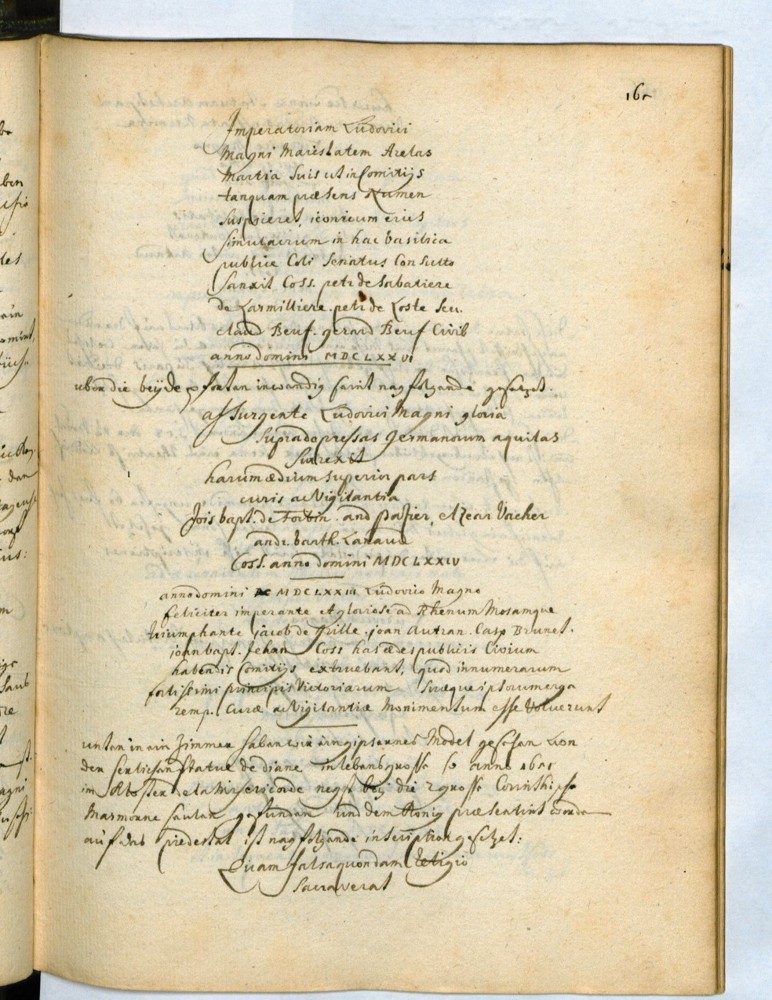 Imperatoriam Ludovici
Magni Maiestatem Arelas
Martia Suis ut in Comitijs
tanquam præsens Numen
Suspiceret, iconicum eius
Simulacrum in hac basilica
publice Coli Senatus Consulto
Sanxit Coss. petr. de Sabatiere
de Larmilliere. petr. de Loste Scu.
claud Beuf. gerard Beuf Civib
anno domini MDCLXXVI
uber die beÿde pforten inwendig seint nagfolgende gesetzet.
assurgente Ludovici Magni gloria
Supradepressas Germanorum aquilas
Surexit
harum ædium Superior pars
curis ac Vigilantia
Jois bapt. de Forbin. and. , elzear Vacher
andr. barth. Lanaue
Coss. anno domini MDCLXXIV
anno domini MDCLXXIII Ludovico Magno
feliciter imperante et gloriose ad Rhenum Mosamque
triumphante jacob de Grille. joan Autran. Casp Brunet.
joan bapt. Jehan Coss has ædes publicis Civium
habendis Comitijs extruebant, quod innumerarum
fortissimi principis Victoriarum Suæque ipsorum erga
remp. Curæ ac Vigilantiæ Monimentum esse Voluerunt
unten in ein Zimmer haben wir ein gipsernes Model gesehen von
der Statue de diane in lebensgrosse so anno 1651
im Kloster de la Misericorde negst beÿ die 2 grosse Corinthise
Marmorne Saulen gefunden und dem König præsentirt worden
auf das piedestal ist nagfolgende inscription gesetzet:
Quam falsa quondam Religio
Sacraverat